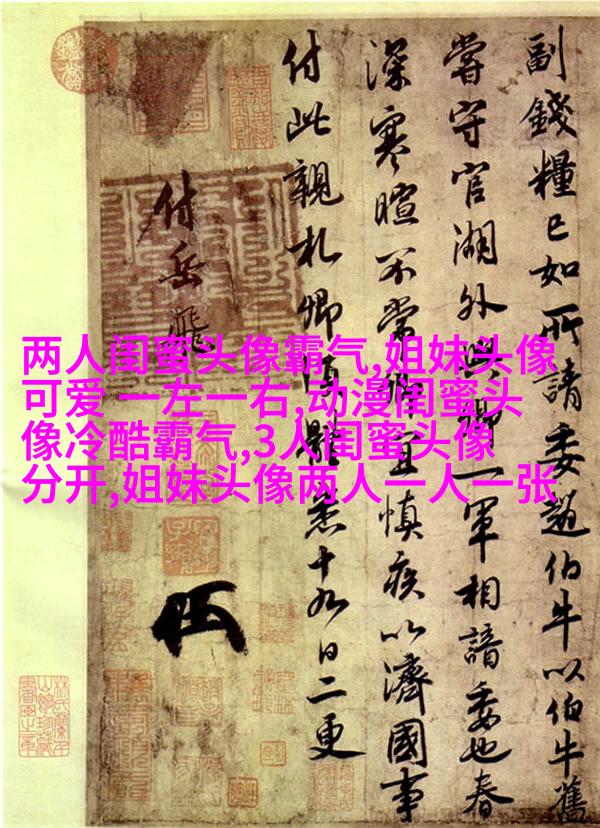 副錢糧已如所請委趙伯牛以伯牛舊
嘗守官湖外與卿一軍相諳委也春
深寒暄不常卿宜慎疾以濟國事
付此親札卿須體悉十九日二更
付岳飛
两人闺蜜头像霸气,姐妹头像
可爱 一左一右,动漫闺蜜头
像冷酷霸气,3人闺蜜头像
分开,姐妹头像两人一人一张